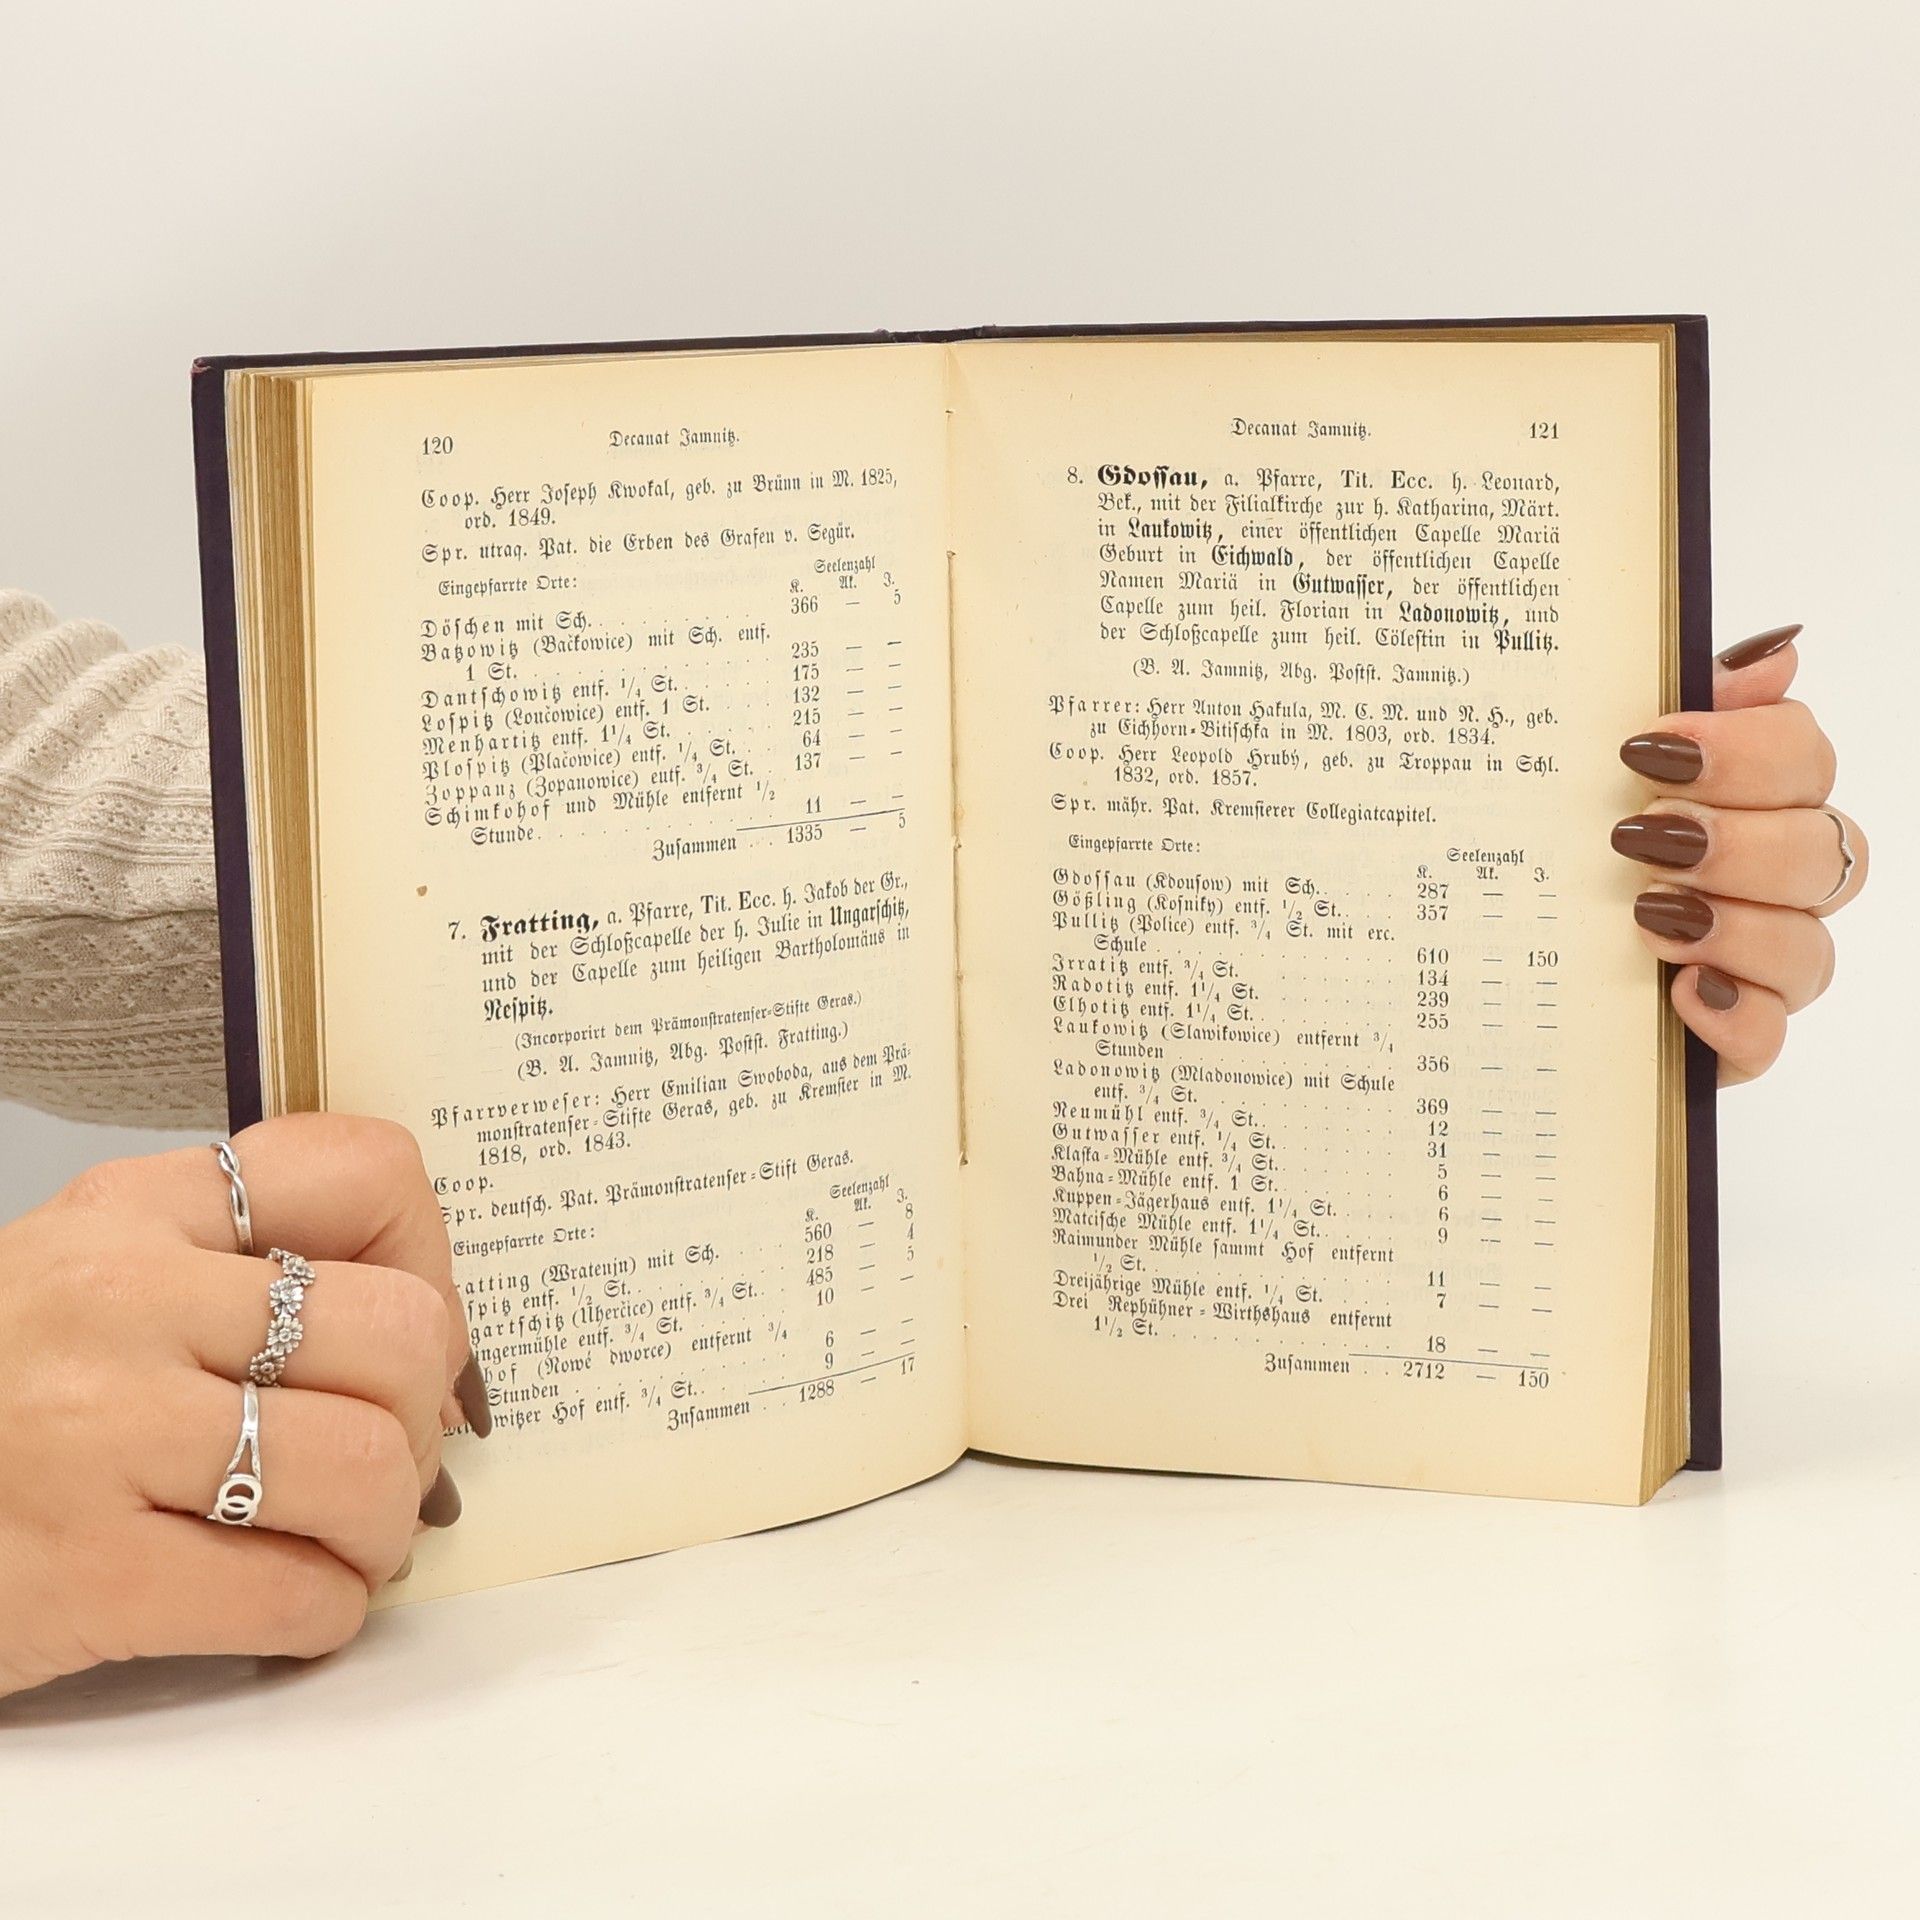 120 Decanat Jamnitz.
Coop. Herr Joseph Kwokal, geb. zu Brünn in M. 1825,
ord. 1849.
Spr. utraq. Pat. die Erben des Grafen v. Segür.
Eingepfarrte Orte: Seelenzahl
K. Ak. J.
Döschen mit Sch. . . . . . . 366 — 5
Batzowitz (Bačkowice) mit Sch. entf.
1 St. . . . . . . . . . 235 — —
Dantschowitz entf. 1/4 St. . . . . 175 — —
Lospitz (Loučowice) entf. 1 St. . . . 132 — —
Menhartitz entf. 1 1/4 St. . . . . 215 — —
Plospitz (Plačowice) entf. 1/4 St. . . 64 — —
Zoppanz (Zopanowice) entf. 3/4 St. . 137 — —
Schimkohof und Mühle entfernt 1/2
Stunde. . . . . . . . . 11 — —
Zusammen . . 1335 — 5
7. Fratting, a. Pfarre, Tit. Ecc. h. Jakob der Gr.,
mit der Schloßcapelle der h. Julie in Ungarschitz,
und der Capelle zum heiligen Bartholomäus in
Nespitz.
(Incorporirt dem Prämonstratenser-Stifte Geras.)
(B. A. Jamnitz, Abg. Postst. Fratting.)
Pfarrverweser: Herr Emilian Swoboda, aus dem Prä-
monstratenser-Stifte Geras, geb. zu Kremsier in M.
1818, ord. 1843.
Coop.
Spr. deutsch. Pat. Prämonstratenser-Stift Geras.
Eingepfarrte Orte: Seelenzahl
K. Ak. J.
ratting (Wratenjn) mit Sch. . . . 560 — 8
spitz entf. 1/2 St. . . . . . 218 — 4
gartschitz (Uherčice) entf. 3/4 St. . . 485 — 5
ngermühle entf. 3/4 St. . . . . 10 — —
hof (Nowé dworce) entfernt 3/4
Stunden . . . . . . . . 6 — —
witzer Hof entf. 3/4 St. . . . . 9 — —
Zusammen . . 1288 — 17
Decanat Jamnitz. 121
8. Gdossau, a. Pfarre, Tit. Ecc. h. Leonard,
Bek., mit der Filialkirche zur h. Katharina, Märt.
in Laukowitz, einer öffentlichen Capelle Mariä
Geburt in Eichwald, der öffentlichen Capelle
Namen Mariä in Gutwasser, der öffentlichen
Capelle zum heil. Florian in Ladonowitz, und
der Schloßcapelle zum heil. Cölestin in Pullitz.
(B. A. Jamnitz, Abg. Postst. Jamnitz.)
Pfarrer: Herr Anton Hakula, M. C. M. und N. H., geb.
zu Eichhorn-Bitischka in M. 1803, ord. 1834.
Coop. Herr Leopold Hrubý, geb. zu Troppau in Schl.
1832, ord. 1857.
Spr. mähr. Pat. Kremsierer Collegiatcapitel.
Eingepfarrte Orte: Seelenzahl
K. Ak. J.
Gdossau (Kdousow) mit Sch. . . . . 287 — —
Gößling (Kosniky) entf. 1/2 St. . . . 357 — —
Pullitz (Police) entf. 3/4 St. mit exc.
Schule . . . . . . . . . 610 — 150
Irratitz entf. 3/4 St. . . . . . 134 — —
Radotitz entf. 1 1/4 St. . . . . . 239 — —
Elhotitz entf. 1 1/4 St. . . . . . 255 — —
Laukowitz (Slawikowice) entfernt 3/4
Stunden . . . . . . . . 356 — —
Ladonowitz (Mladonowice) mit Schule
entf. 3/4 St. . . . . . . . 369 — —
Neumühl entf. 3/4 St. . . . . . 12 — —
Gutwasser entf. 1/4 St. . . . . . 31 — —
Klaska-Mühle entf. 3/4 St. . . . . 5 — —
Bahna-Mühle entf. 1 St. . . . . . 6 — —
Kuppen-Jägerhaus entf. 1 1/4 St. . . . 6 — —
Matcische Mühle entf. 1 1/4 St. . . . 9 — —
Raimunder Mühle sammt Hof entfernt
1/2 St. . . . . . . . . 11 — —
Dreijährige Mühle entf. 1/4 St. . . . 7 — —
Drei Rephühner-Wirthshaus entfernt
1 1/2 St. . . . . . . . . 18 — —
Zusammen . . 2712 — 150